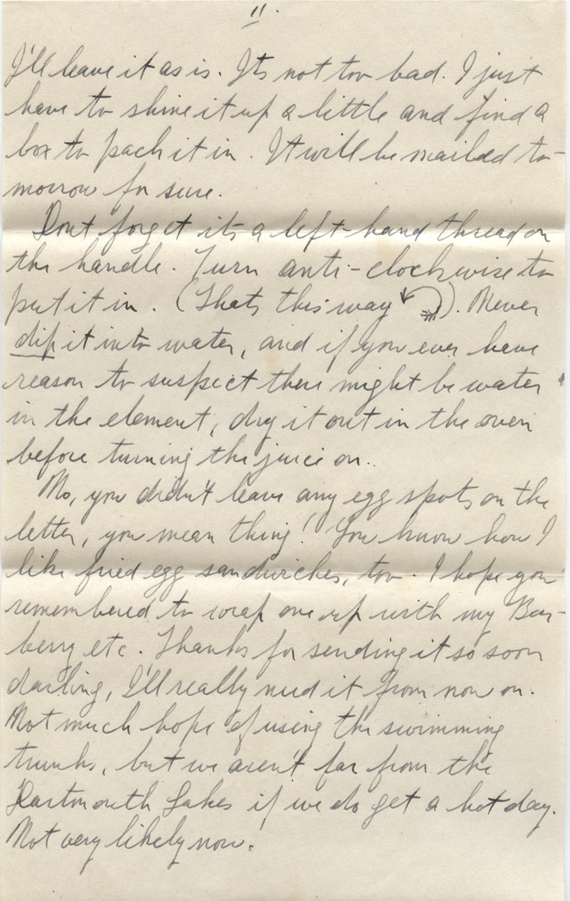 11.
I'll leave it as is. Its not too bad. I just
have to shine it up a little and find a
box to pack it in. It will be mailed to-
morrow for sure.
Dont forget its a left-hand thread on
the handle. Turn anti-clockwise to
put it in. (Thats this way ). Never
dip it into water, and if you ever have
reason to suspect there might be water
in the element, dry it out in the oven
before turning the juice on..
No, you didn't leave any egg spots on the
letter, you mean thing! You know how I
like fried egg sandwiches, too. I hope you
remembered to wrap one up with my Bur-
berry etc. Thanks for sending it so soon
darling, I'll really need it from now on.
Not much hope of using the swimming
trunks, but we aren't far from the
Dartmouth Lakes if we do get a hot day.
Not very likely now.